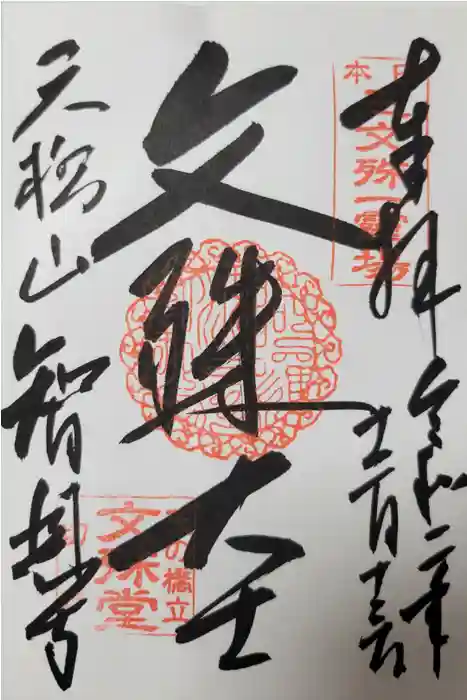 奉拝
日本
三文殊一霊場
令和二年
十一月
文殊大士
天の橋立
文殊堂
天橋山 智恩寺